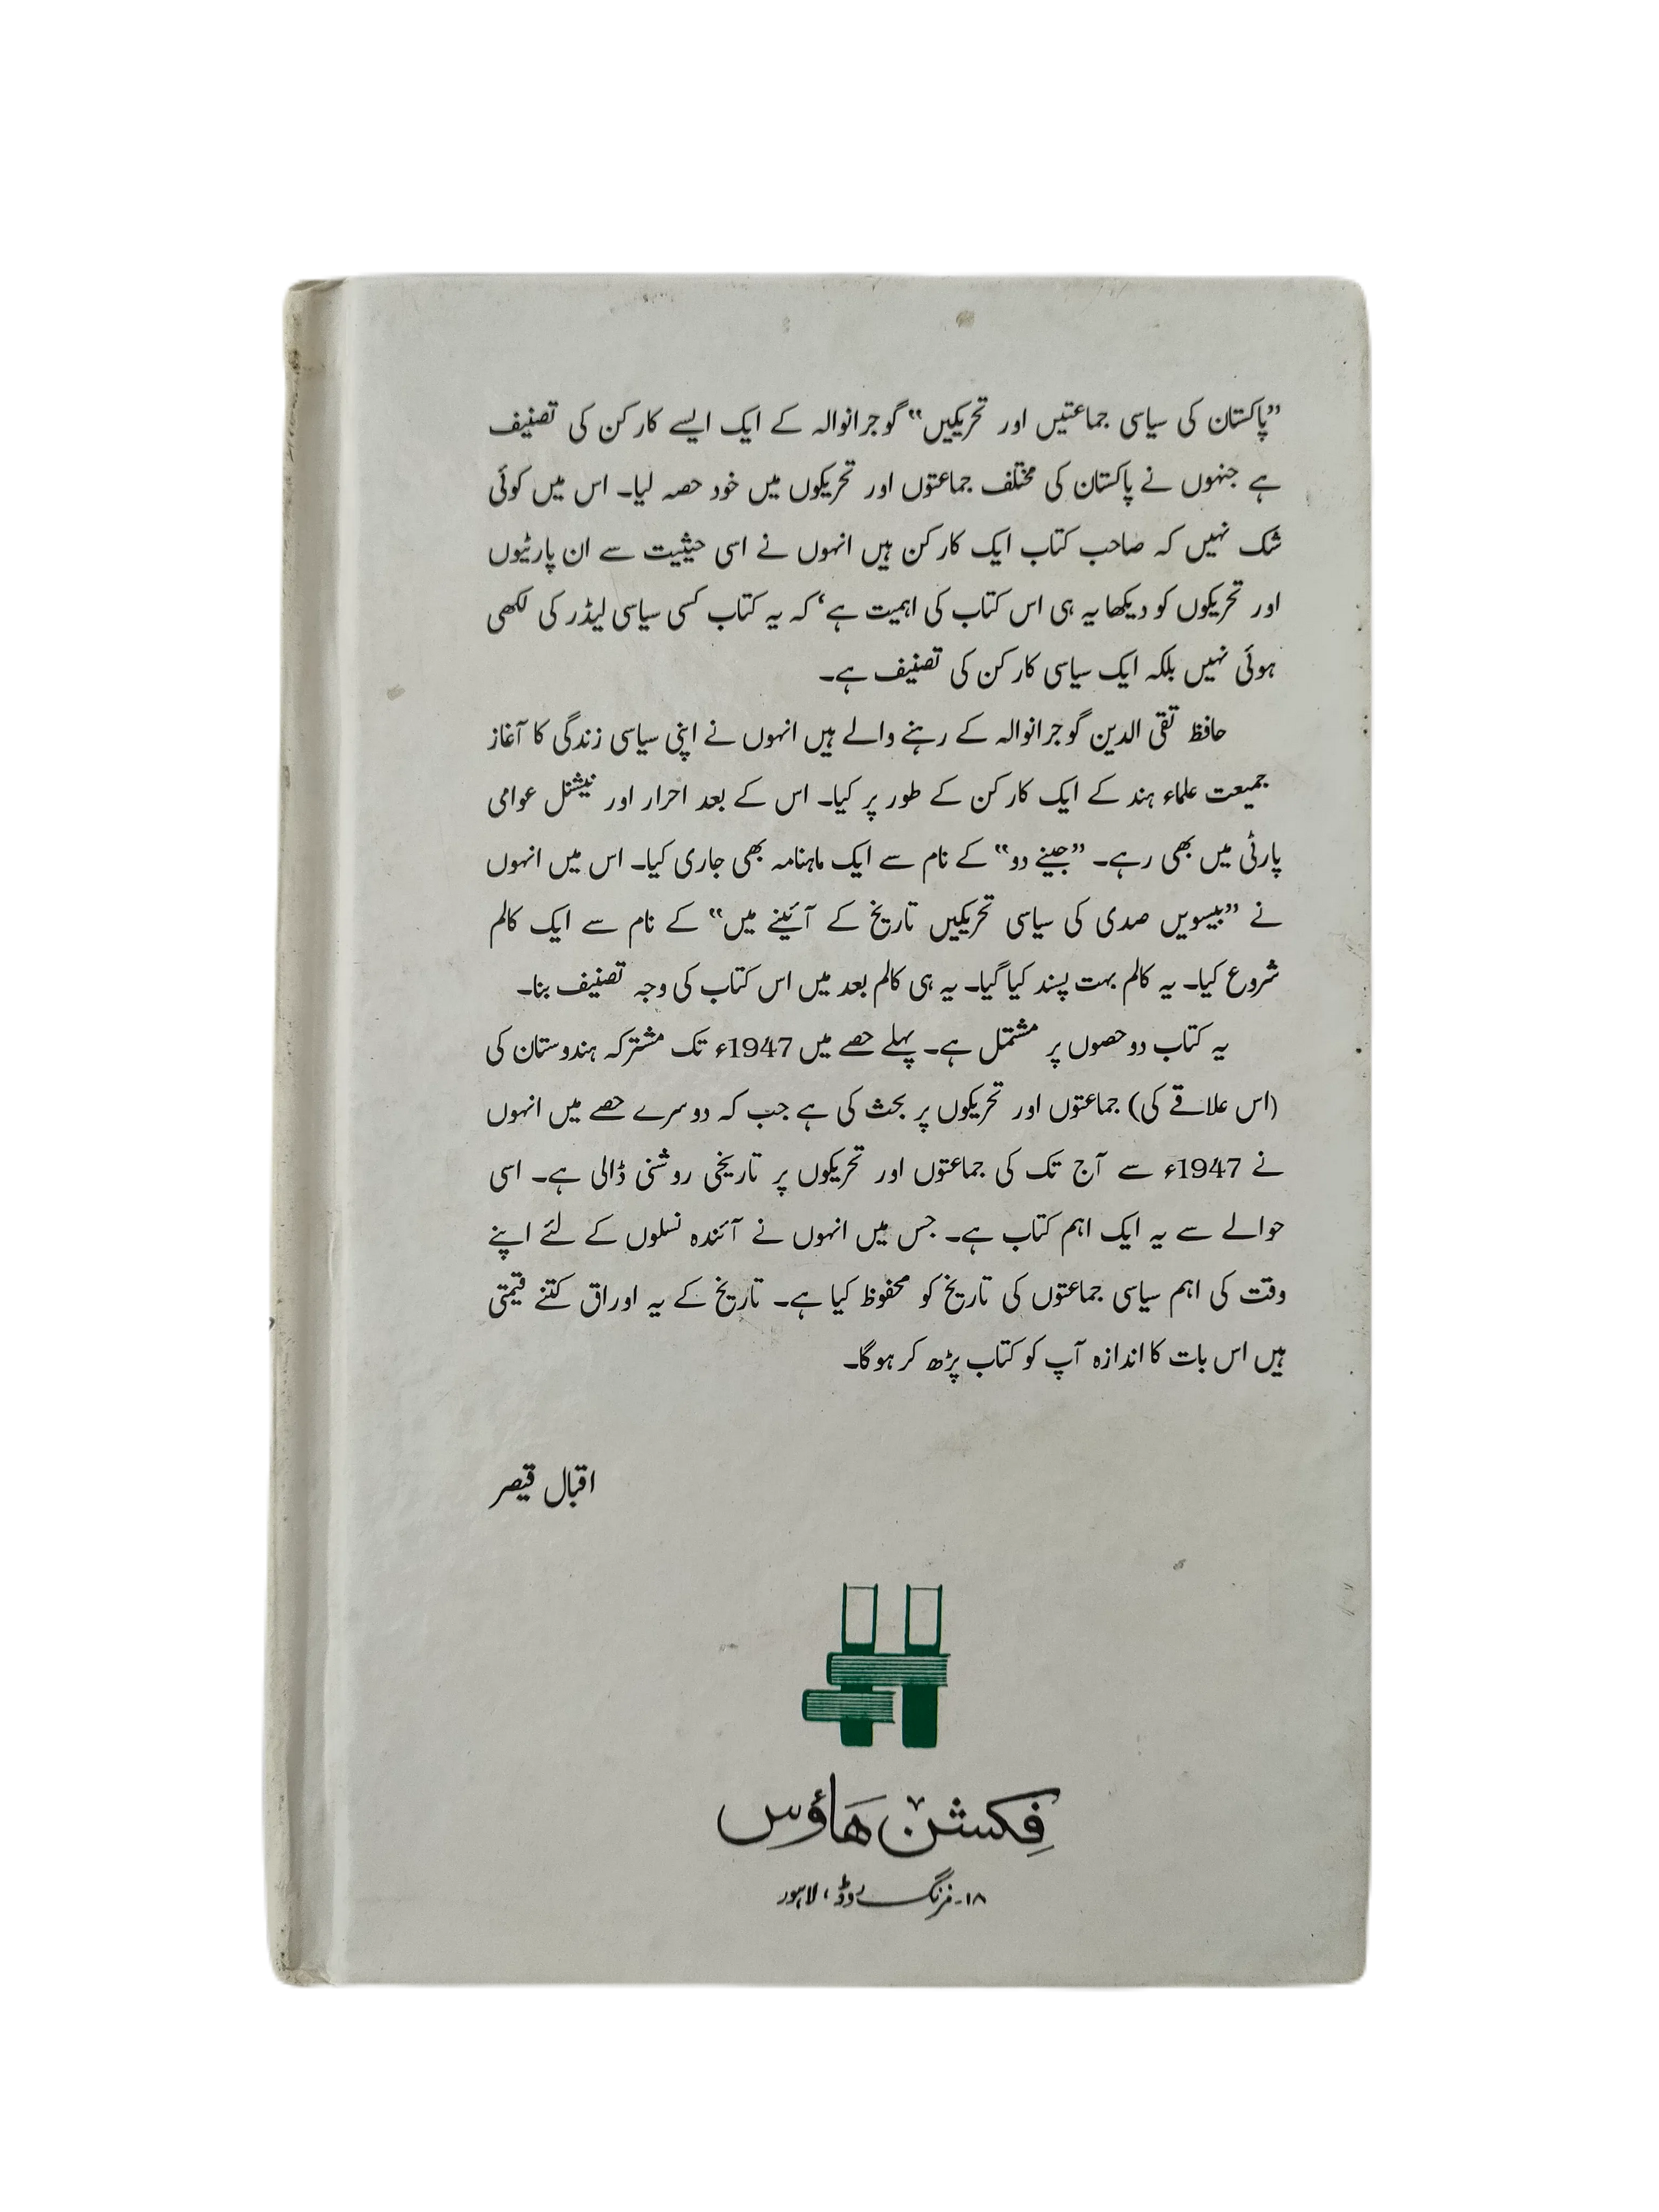 ”پاکستان کی سیاسی جماعتیں اور تحریکیں“ گوجرانوالہ کے ایک ایسے کارکن کی تصنیف
ہے جنہوں نے پاکستان کی مختلف جماعتوں اور تحریکوں میں خود حصہ لیا۔ اس میں کوئی
شک نہیں کہ صاحب کتاب ایک کارکن ہیں انہوں نے اسی حیثیت سے ان پارٹیوں
اور تحریکوں کو دیکھا یہ ہی اس کتاب کی اہمیت ہے‘ کہ یہ کتاب کسی سیاسی لیڈر کی لکھی
ہوئی نہیں بلکہ ایک سیاسی کارکن کی تصنیف ہے۔
حافظ تقی الدین گوجرانوالہ کے رہنے والے ہیں انہوں نے اپنی سیاسی زندگی کا آغاز
جمیعت علماء ہند کے ایک کارکن کے طور پر کیا۔ اس کے بعد احرار اور نیشنل عوامی
پارٹی میں بھی رہے۔ ”جینے دو“ کے نام سے ایک ماہنامہ بھی جاری کیا۔ اس میں انہوں
نے ”بیسویں صدی کی سیاسی تحریکیں تاریخ کے آئینے میں“ کے نام سے ایک کالم
شروع کیا۔ یہ کالم بہت پسند کیا گیا۔ یہ ہی کالم بعد میں اس کتاب کی وجہ تصنیف بنا۔
یہ کتاب دو حصوں پر مشتمل ہے۔ پہلے حصے میں 1947ء تک مشترکہ ہندوستان کی
(اس علاقے کی) جماعتوں اور تحریکوں پر بحث کی ہے جب کہ دوسرے حصے میں انہوں
نے 1947ء سے آج تک کی جماعتوں اور تحریکوں پر تاریخی روشنی ڈالی ہے۔ اسی
حوالے سے یہ ایک اہم کتاب ہے۔ جس میں انہوں نے آئندہ نسلوں کے لئے اپنے
وقت کی اہم سیاسی جماعتوں کی تاریخ کو محفوظ کیا ہے۔ تاریخ کے یہ اوراق کتنے قیمتی
ہیں اس بات کا اندازہ آپ کو کتاب پڑھ کر ہوگا۔
اقبال قیصر
فکشن ہاؤس
۱۸۔مزنگ روڈ، لاہور